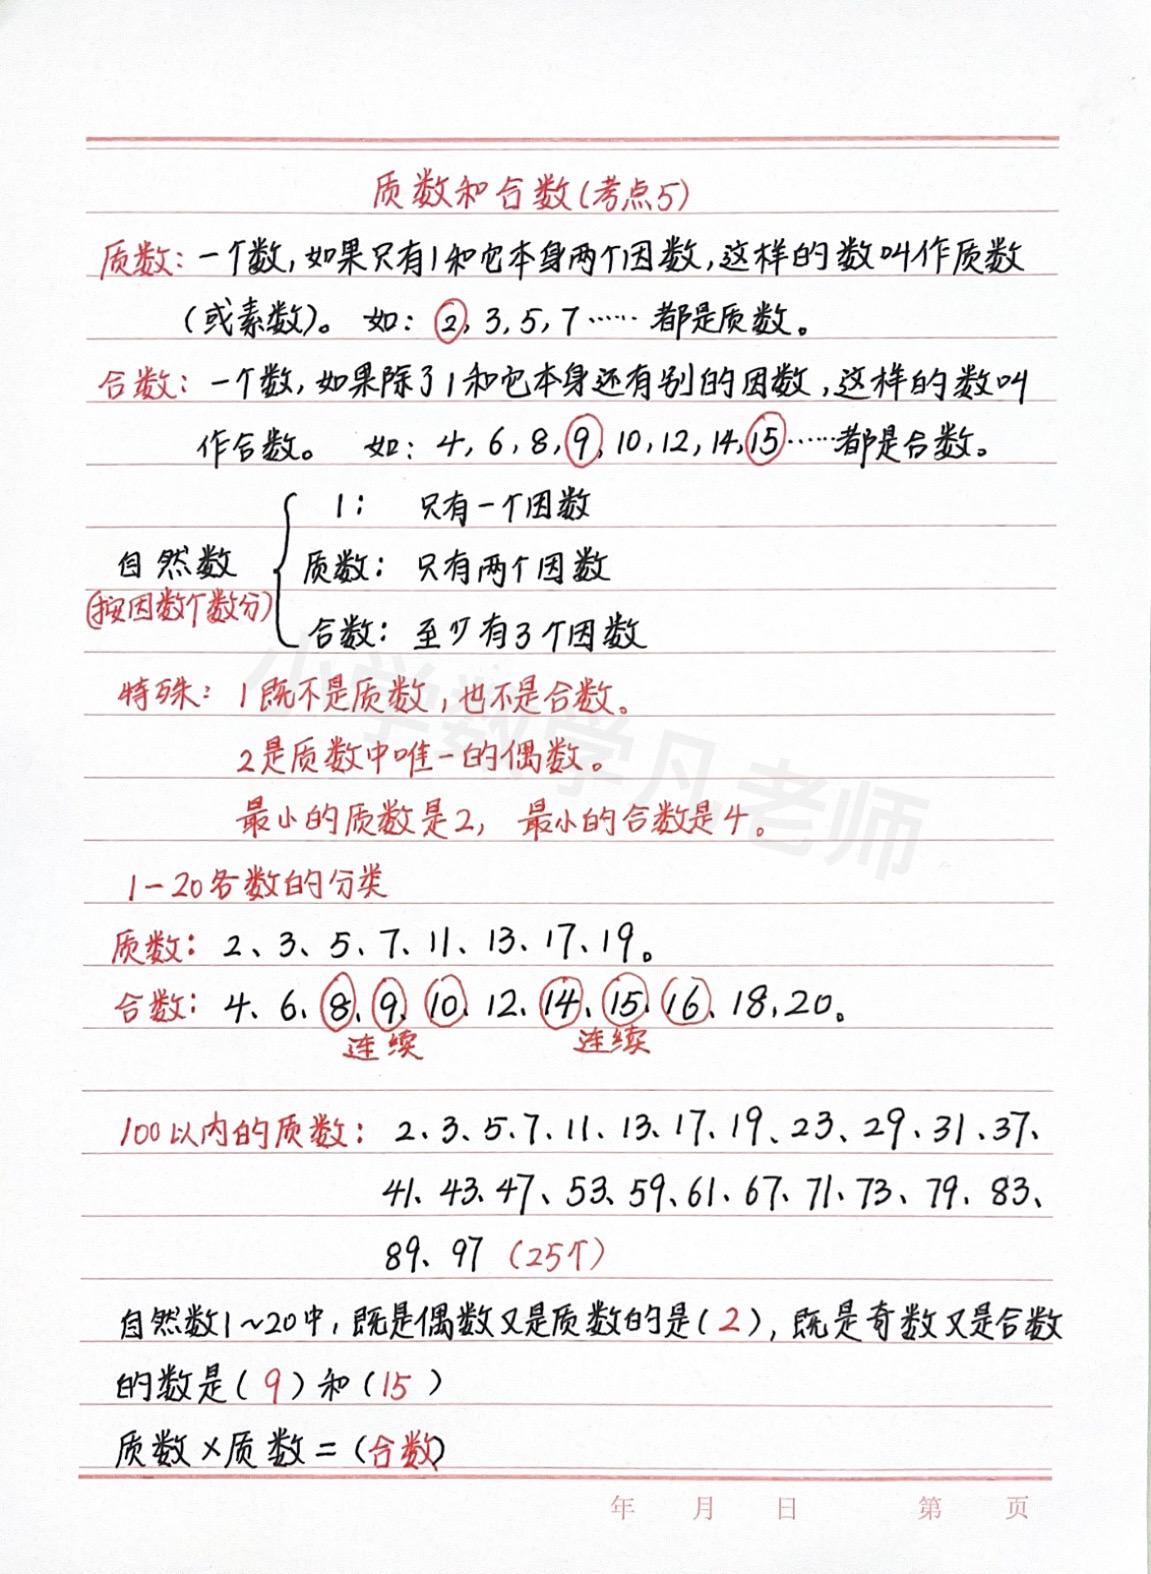 质数和合数(考点5)
质数：一个数,如果只有1和它本身两个因数,这样的数叫作质数
(或素数)。 如：2,3,5,7……都是质数。
合数：一个数,如果除了1和它本身还有别的因数,这样的数叫
作合数。 如：4,6,8,9,10,12,14,15……都是合数。
1： 只有一个因数
自然数 质数： 只有两个因数
(按因数个数分)
合数：至少有3个因数
特殊：1既不是质数,也不是合数。
2是质数中唯一的偶数。
最小的质数是2, 最小的合数是4。
小学数学凡老师
1-20各数的分类
质数：2、3、5、7、11、13、17、19。
合数：4、6、8、9、10、12、14、15、16、18、20。
连续 连续
100以内的质数：2、3、5、7、11、13、17、19、23、29、31、37、
41、43、47、53、59、61、67、71、73、79、83、
89、97 (25个)
自然数1~20中,既是偶数又是质数的是(2),既是奇数又是合数
的数是(9)和(15)
质数×质数=(合数)
年 月 日 第 页